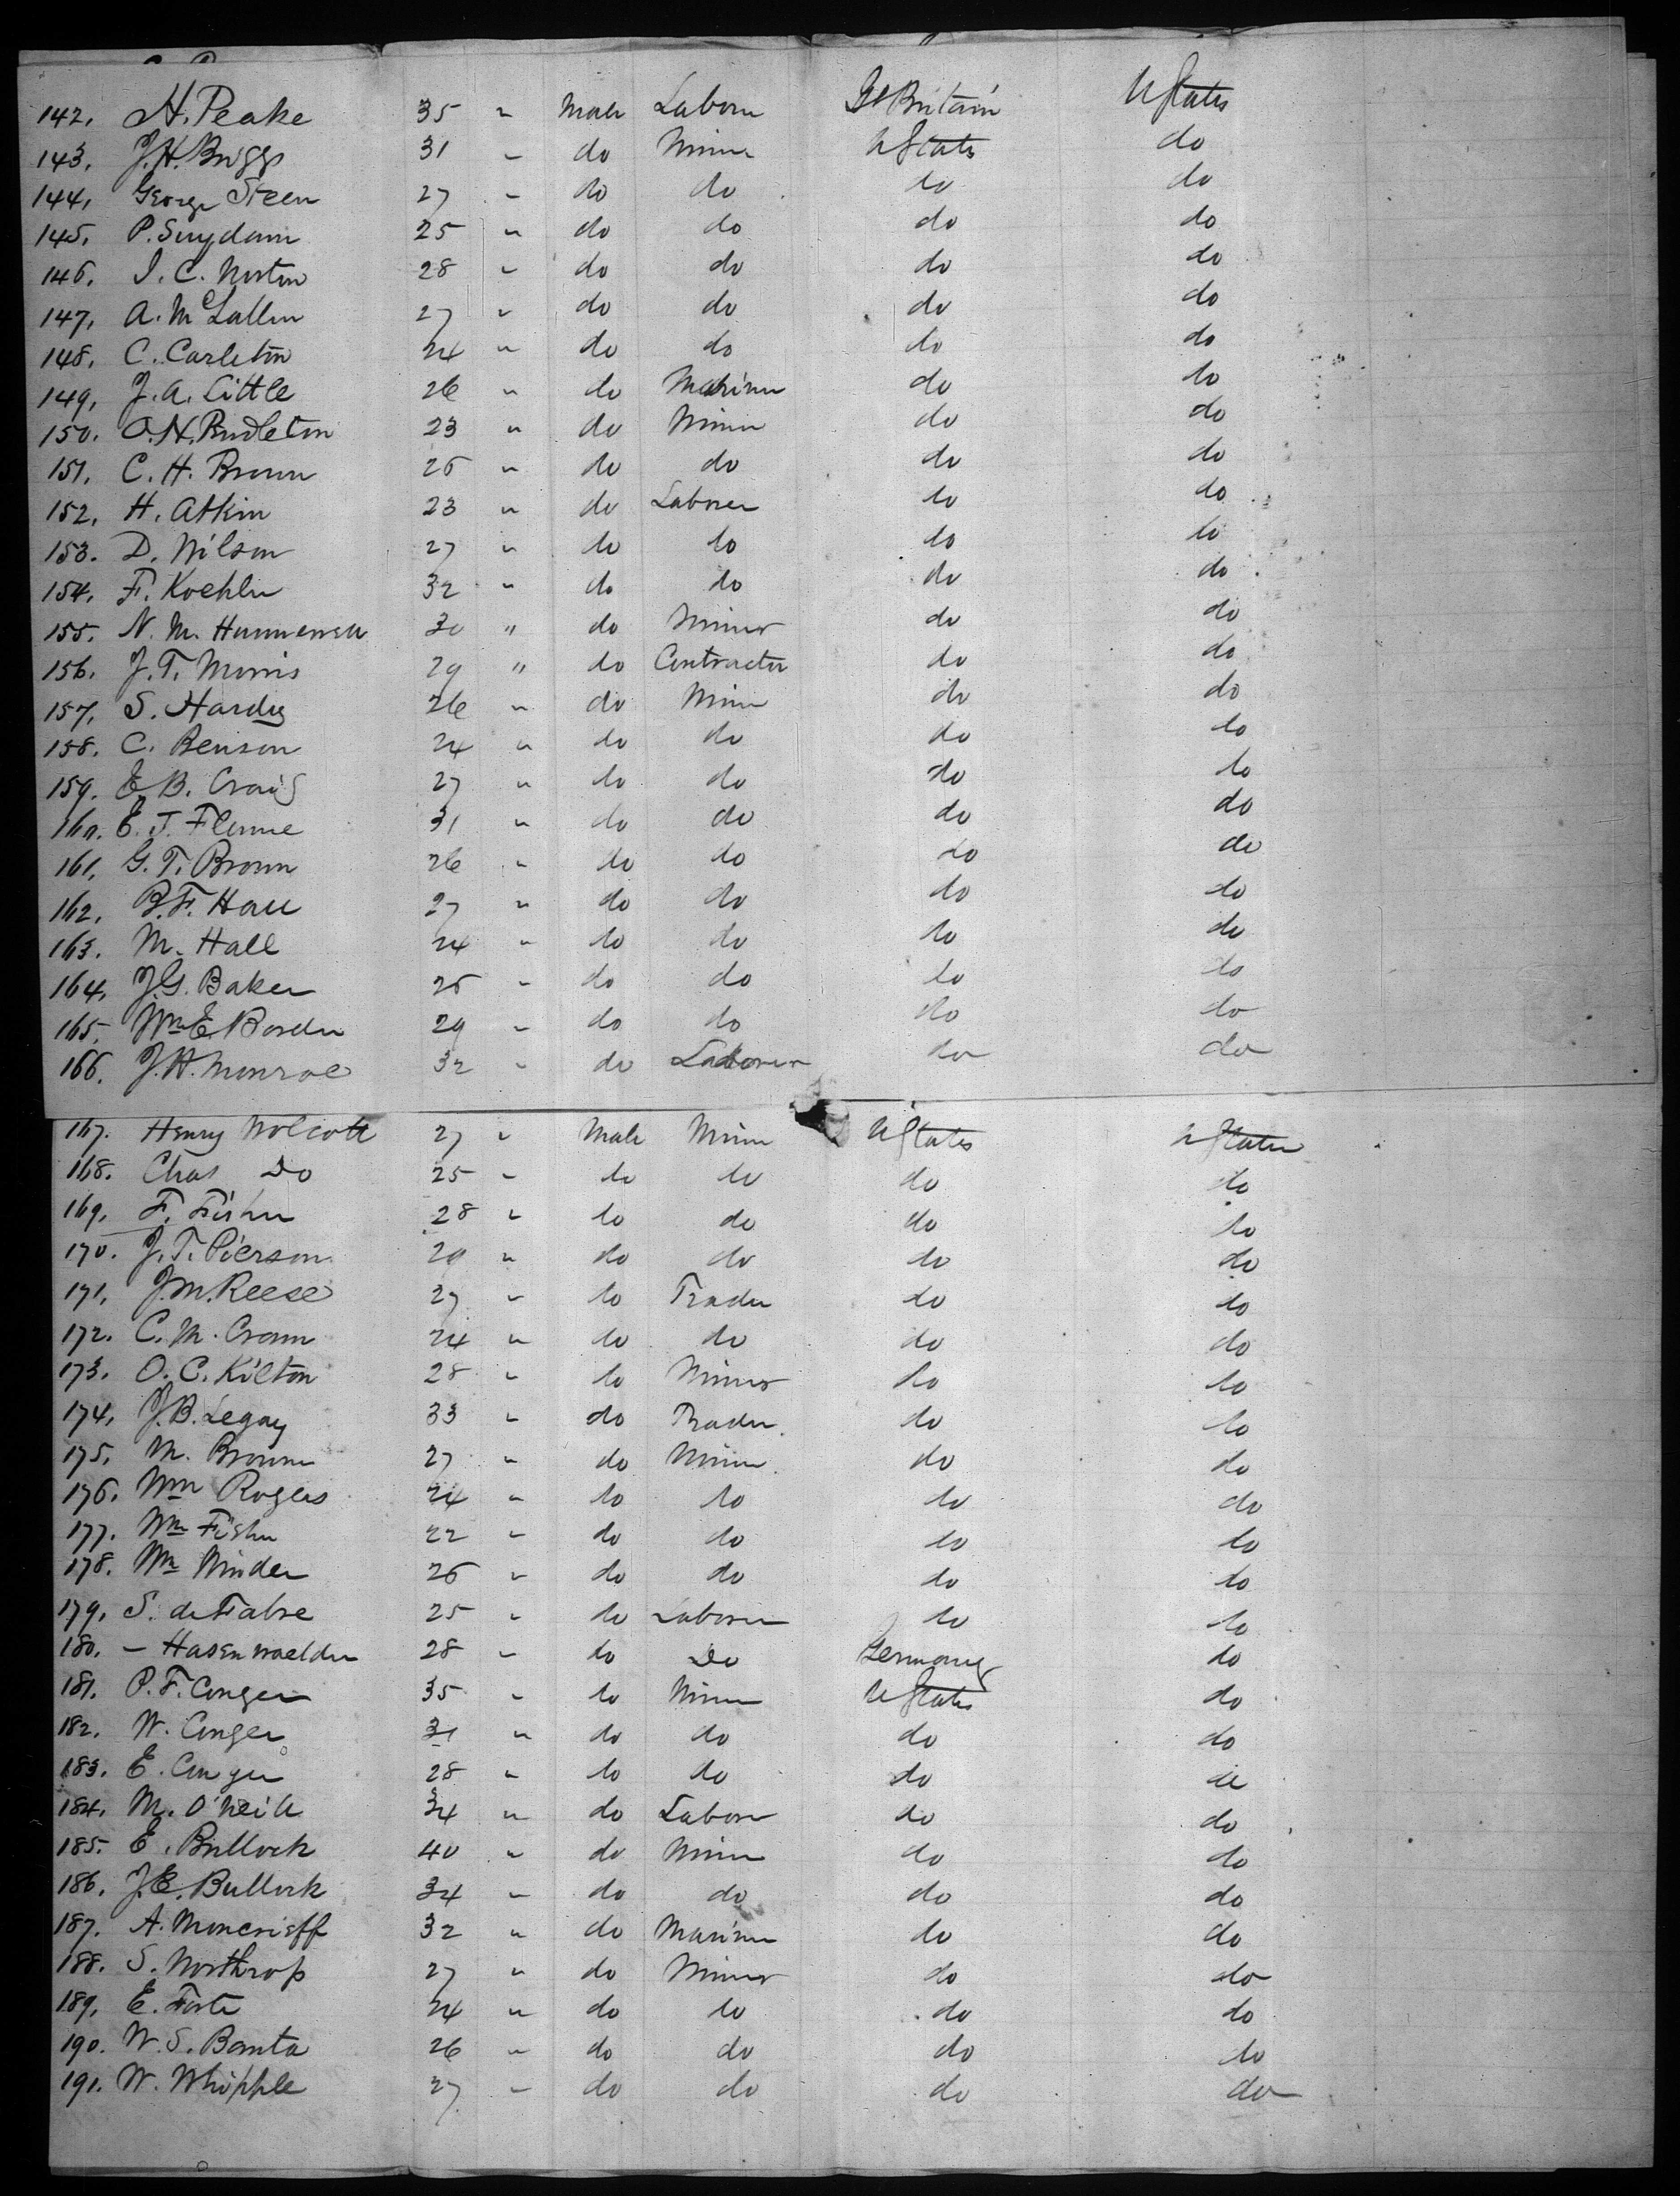 142. H. Peake 35 " Male Laborer Gt Britain U States
143. J. H. Briggs 31 " do Miner U States do
144. George Steen 27 " do do do do
145. P. Suydam 25 " do do do do
146. I. C. Norton 28 " do do do do
147. A. McLallen 27 " do do do do
148. C. Carleton 24 " do do do do
149. J. A. Little 26 " do Mariner do do
150. O. H. Pendleton 23 " do Miner do do
151. C. H. Brown 25 " do do do do
152. H. Atkin 23 " do Laborer do do
153. D. Wilson 27 " do do do do
154. F. Koehler 32 " do do do do
155. N. M. Hunnewell 30 " do Miner do do
156. J. T. Morris 29 " do Contractor do do
157. S. Hardy 26 " do Miner do do
158. C. Benson 24 " do do do do
159. E. B. Craig 27 " do do do do
160. E. J. Flemme 31 " do do do do
161. G. T. Brown 26 " do do do do
162. B. F. Hall 27 " do do do do
163. M. Hall 24 " do do do do
164. J. G. Baker 25 " do do do do
165. Wm E. Borden 29 " do do do do
166. J. H. Monroe 32 " do Laborer do do
167. Henry Wolcott 27 " Male Miner U States U States
168. Chas Do 25 " do do do do
169. F. Fisher 28 " do do do do
170. J. T. Pierson 29 " do do do do
171. J. M. Reese 27 " do Trader do do
172. C. M. Cram 24 " do do do do
173. O. C. Kilton 28 " do Miner do do
174. J. B. Legay 33 " do Trader do do
175. M. Brown 27 " do Miner do do
176. Wm Rogers 24 " do do do do
177. Wm Fisher 22 " do do do do
178. Wm Winder 25 " do do do do
179. S. de Fabre 25 " do Laborer do do
180. – Hasenwaelder 28 " do Do Germany do
181. P. F. Conger 35 " do Miner U States do
182. W. Conger 31 " do do do do
183. E. Conger 28 " do do do do
184. M. O'Neill 34 " do Laborer do do
185. E. Bullock 40 " do Miner do do
186. J. E. Bullock 34 " do do do do
187. A. Moncrieff 32 " do Mariner do do
188. S. Northrop 27 " do Miner do do
189. E. Foste 24 " do do do do
190. W. S. Banta 26 " do do do do
191. W. Whipple 27 " do do do do